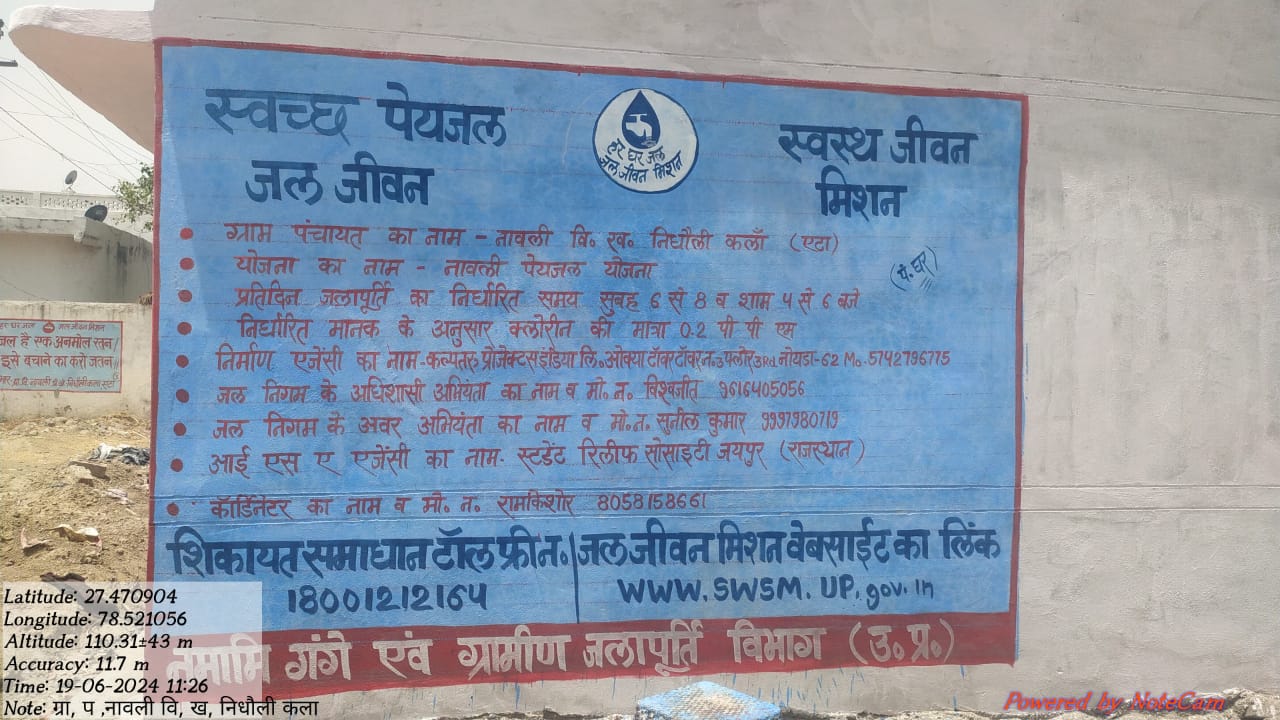 स्वच्छ पेयजल
जल जीवन
हर घर जल
जल जीवन मिशन
स्वस्थ जीवन
मिशन
• ग्राम पंचायत का नाम - नावली वि॰ ख॰ निधौली कलाँ (एटा)
(पं. घर)
• योजना का नाम - नावली पेयजल योजना
• प्रतिदिन जलापूर्ति का निर्धारित समय सुबह 6 से 8 व शाम 4 से 6 बजे
• निर्धारित मानक के अनुसार क्लोरीन की मात्रा 0.2 पी पी एम
• निर्माण एजेंसी का नाम-कल्पतरु प्रोजेक्टस इंडिया लि॰ ओक्या टॉवर टॉवर न॰ 3 फ्लोर 3Rd नोयडा-62 Mo. 5742796775
• जल निगम के अधिशासी अभियंता का नाम व मो॰ न. विश्वजीत 9616405056
• जल निगम के अवर अभियंता का नाम व मो॰ न. सुनील कुमार 9997980719
• आई एस ए एजेंसी का नाम- स्टडेंट रिलीफ सोसाइटी जयपुर (राजस्थान)
• कॉर्डिनेटर का नाम व मौ॰ न. रामकिशोर 8058158661
शिकायत समाधान टॉल फ्री न॰
18001212164
जल जीवन मिशन वेबसाईट का लिंक
WWW.SWSM.UP.gov.in
नमामि गंगे एवं ग्रामीण जलापूर्ति विभाग (उ. प्र.)
हर घर जल जल जीवन मिशन
जल है एक अनमोल रतन
इसे बचाने का करो जतन
Latitude: 27.470904
Longitude: 78.521056
Altitude: 110.31±43 m
Accuracy: 11.7 m
Time: 19-06-2024 11:26
Note: ग्रा, प ,नावली वि, ख, निधौली कला
Powered by NoteCam